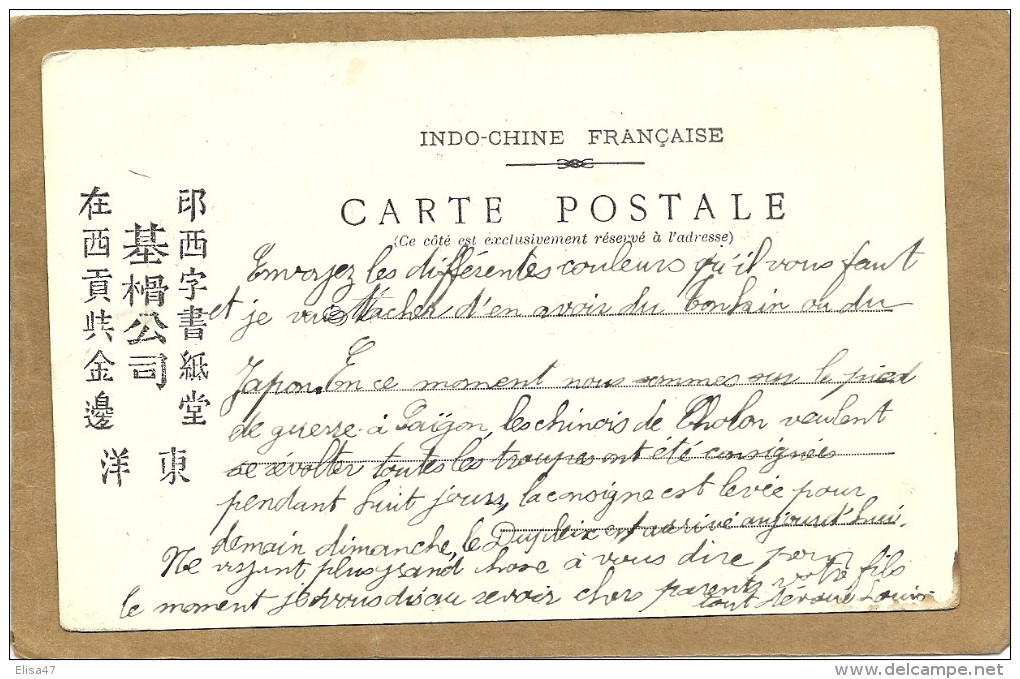 INDO-CHINE FRANÇAISE
CARTE POSTALE
(Ce côté est exclusivement réservé à l'adresse)
印西字書紙堂
基榾公司
在西貢共金邊
東洋
Envoyez les différentes couleurs qu'il vous faut
et je vais tâcher d'en avoir du Tonkin ou du
Japon. En ce moment nous sommes sur le pied
de guerre à Saïgon, les chinois de Cholon veulent
se révolter toutes les troupes ont été consignées
pendant huit jours, la consigne est levée pour
demain dimanche, le Dupleix est arrivé aujourd'hui.
Ne voyant plus grand chose à vous dire pour
le moment je vous dis au revoir chers parents votre fils
tout dévoué Louis
Elisa47
www.delcampe.net